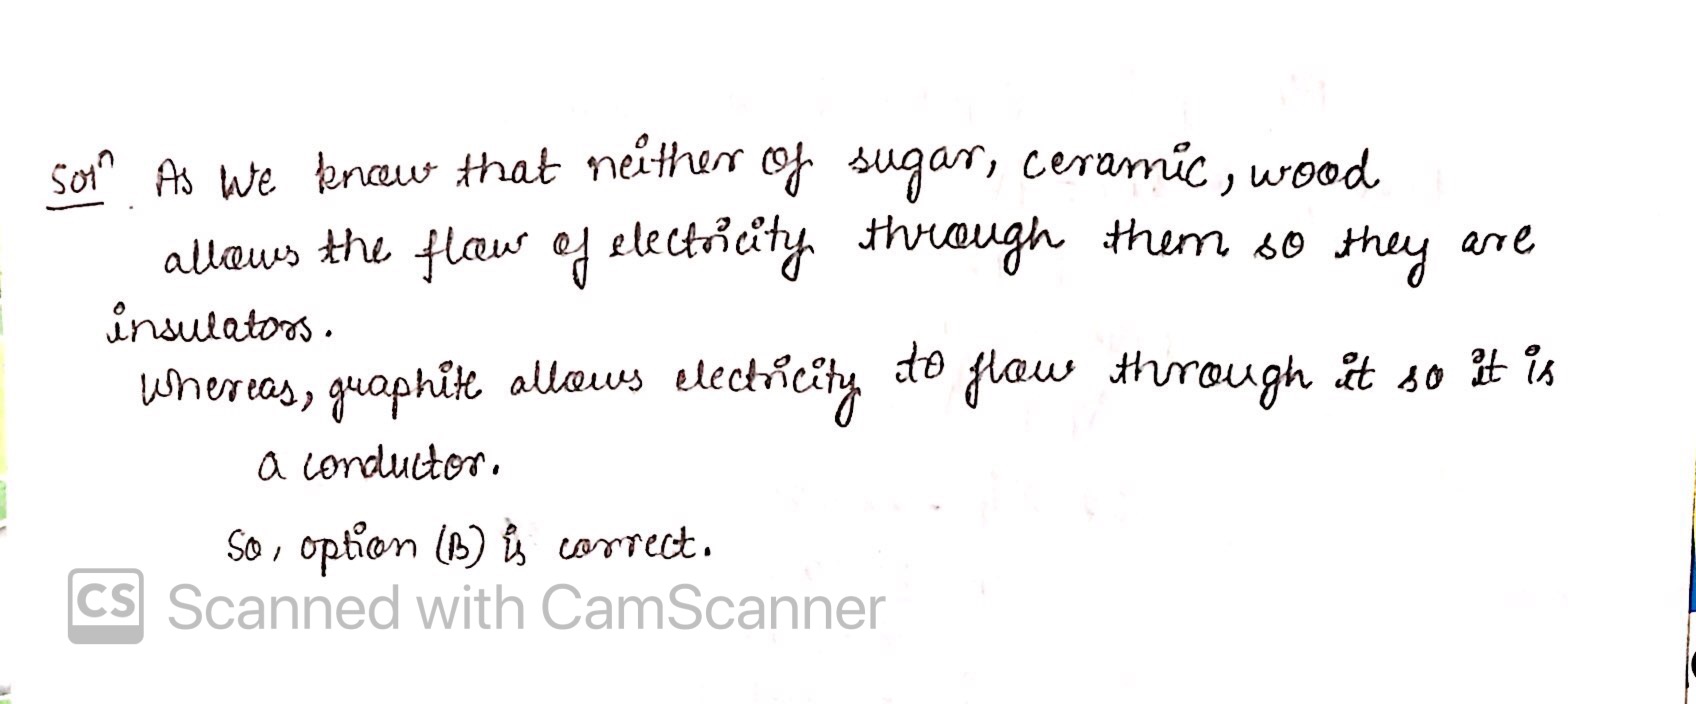 Solⁿ. As We know that neither of sugar, ceramic, wood
allows the flow of electricity through them so they are
insulators.
Whereas, graphite allows electricity to flow through it so it is
a conductor.
So, option (B) is correct.
CS Scanned with CamScanner